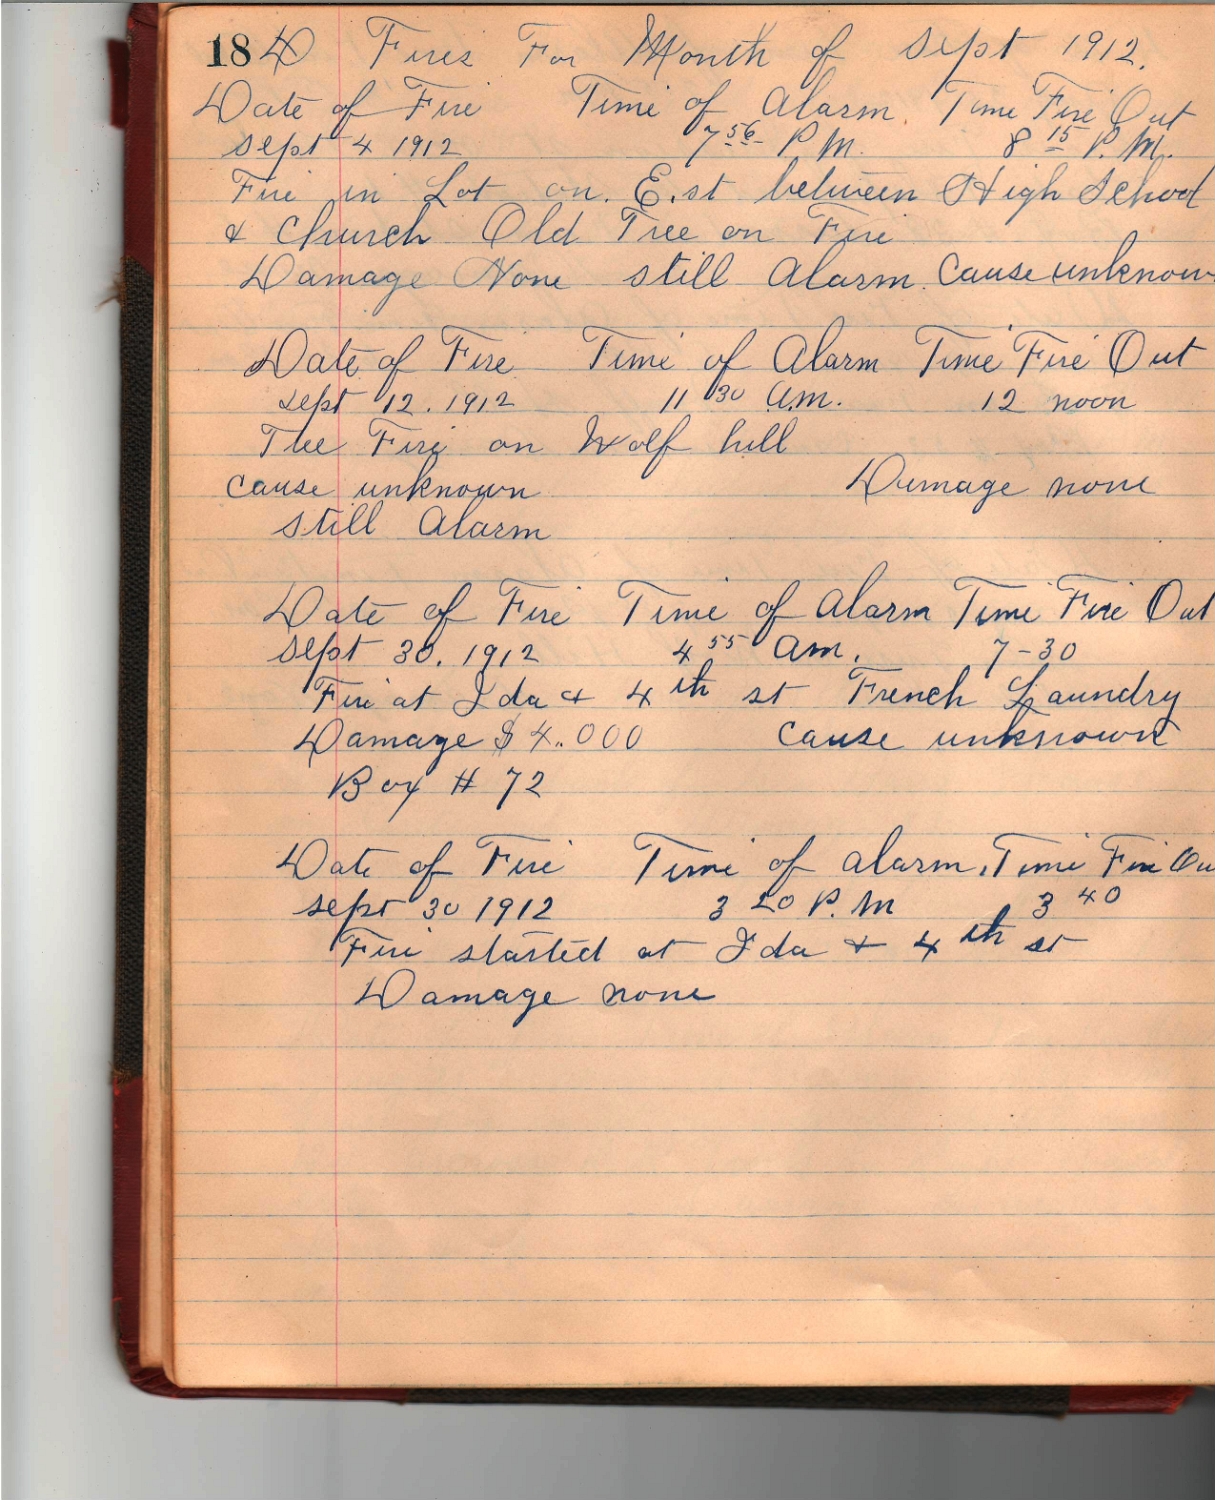 18 D Fires For Month of Sept 1912.
Date of Fire Time of Alarm. Time Fire Out
Sept 4 1912 7 56 P.M. 8 15 P.M.
Fire in Lot on. E. st between High School
& Church Old Tree on Fire
Damage None still Alarm. Cause unknown
Date of Fire Time of Alarm Time Fire Out
Sept 12. 1912 11 30 A.M. 12 noon
The Fire on Wolf hill
Cause unknown Damage none
still Alarm
Date of Fire Time of Alarm Time Fire Out
Sept 30. 1912 4 55 Am. 7-30
Fire at Ida & 4th st French Laundry
Damage $4.000 Cause unknown
Box # 72
Date of Fire Time of alarm. Time Fire Ou
Sept 30 1912 3 20 P.M 3 40
Fire started at Ida & 4th st
Damage none